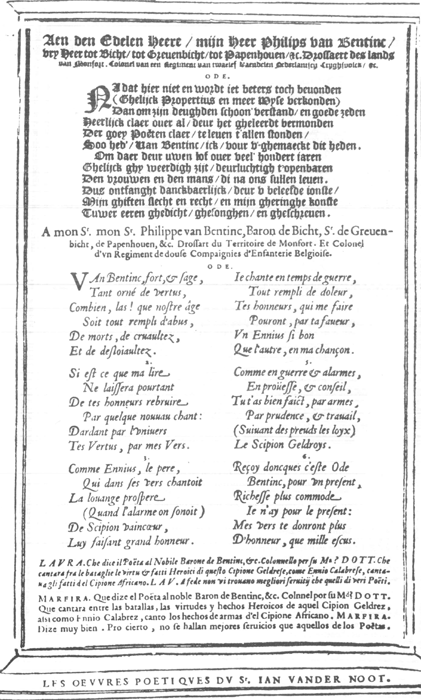 Aen den Edelen Heere / mijn Heer Philips van Bentinc /
vry Heer tot Bicht / tot Greuenbicht / tot Papenhouen / &c. Drossaert des lands
van Monfort. Colonel van een Regiment van twaelf Vaendelen Nederlantscj Crijghsvolck / &c.
ODE.
NA dat hier niet en wordt iet beters toch beuonden
(Ghelijck Propertius en meer Wyse verkonden)
Dan om zijn deughden schoon verstand / en goede zeden
Heerlijck claer ouer al / deur het gheleerdt vermonden
Der goey Poëten claer / te leuen t'allen stonden /
Soo heb' / Van Bentinc / ick / vour v ghemaeckt dit heden.
Om daer deur uwen lof ouer veel' hondert iaren
Ghelijck ghy weerdigh zijt / deurluchtigh t'openbaren
Den vrouwen en den mans / di na ons sullen leuen.
Dus ontfanght danckbaerlijck / deur v beleefde ionste /
Mijn ghiften slecht en recht / en mijn gheringhe konste
Tuwer eeren ghedicht / ghesonghen / en gheschreuen.
A mon Sr. mon Sr. Philippe van Bentinc, Baron de Bicht, Sr. de Greuen-
bicht, de Papenhouen, &c. Drossart du Territoire de Monfort. Et Colonel
d'vn Regiment de douse Compaignies d'Enfanterie Belgioise.
ODE.
VAn Bentinc, fort, & sage,
Tant orné de vertus,
Combien, las! que nostre âge
Soit tout rempli d'abus,
De morts, de cruaultez,
Et de desloiaultez.
2.
Si est ce que ma lire
Ne laissera pourtant
De tes honneurs rebruire
Par quelque nouuau chant:
Dardant par l'vniuers
Tes Vertus, par mes Vers.
3.
Comme Ennius, le pere,
Qui dans ses vers chantoit
La louange prospere
(Quand l'alarme on sonoit)
De Scipion vaincœur,
Luy faisant grand honneur.
Ie chante en temps de guerre,
Tout rempli de doleur,
Tes honneurs, qui me faire
Pouront, par ta faueur,
Vn Ennius si bon
Que l'autre, en ma chançon.
5.
Comme en guerre & alarmes,
En proüesse, & conseil,
Tu t'as bien faict, par armes,
Par prudence, & trauail,
(Suiuant des preuds les loyx)
Le Scipion Geldroys.
6.
Reçoy doncques c'este Ode
Bentinc, pour vn present,
Richesse plus commode
Ie n'ay pour le present:
Mes vers te donront plus
D'honneur, que mille escus.
LAVRA. Che dice il Poëta al Nobile Barone de Bentinc, &c. Colonnello per su Mta? DOTT. Che
cantara fra le bataglie le virtu & fatti Heroici di questo Cipione Geldrese, come Ennio Calabrese, canta-
ua gli fatti del Cipione Africano. LAV. A fede non vi trouano megliori seruitij che quelli di veri Poëti.
MARFIRA. Que dize el Poëta al noble Baron de Bentinc, &c. Colnnel por su Mtd? DOTT.
Que cantara entre las batallas, las virtudes y hechos Heroicos de aquel Cipion Geldrez,
asi como Ennio Calabrez, canto los hechos de armas d'el Cipione Africano. MARFIRA.
Dize muy bien. Pro cierto, no se hallan mejores seruicios que aquellos de los Poëtas.
LES OEVVRES POETIQVES DV Sr. IAN VANDER NOOT.